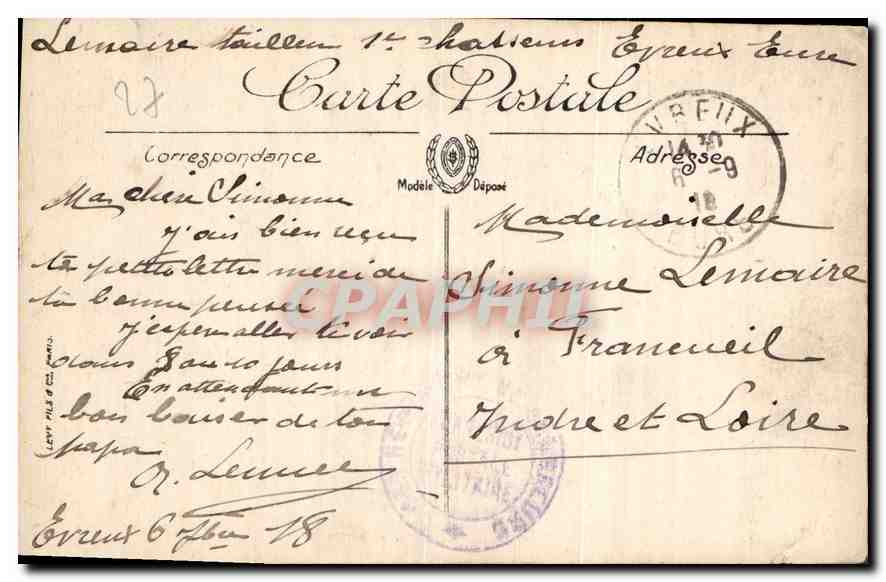 Lemaire tailleur 1er chasseurs Evreux Eure
27
Carte Postale
Correspondance
Adresse
Modèle Déposé
EVREUX
14 30
6 -9
18
EURE
Ma chère Simonne
j'ai bien reçu
ta petite lettre merci de
ta bonne pensée
j'espère aller te voir
dans 8 ou 10 jours
En attendant
bon baiser de ton
papa
Evreux 6 7bre 18
Mademoiselle
Simonne Lemaire
à Francueil
Indre et Loire
LEVY FILS & Cie, PARIS.
CPAPHIL
PLACE
MILITAIRE